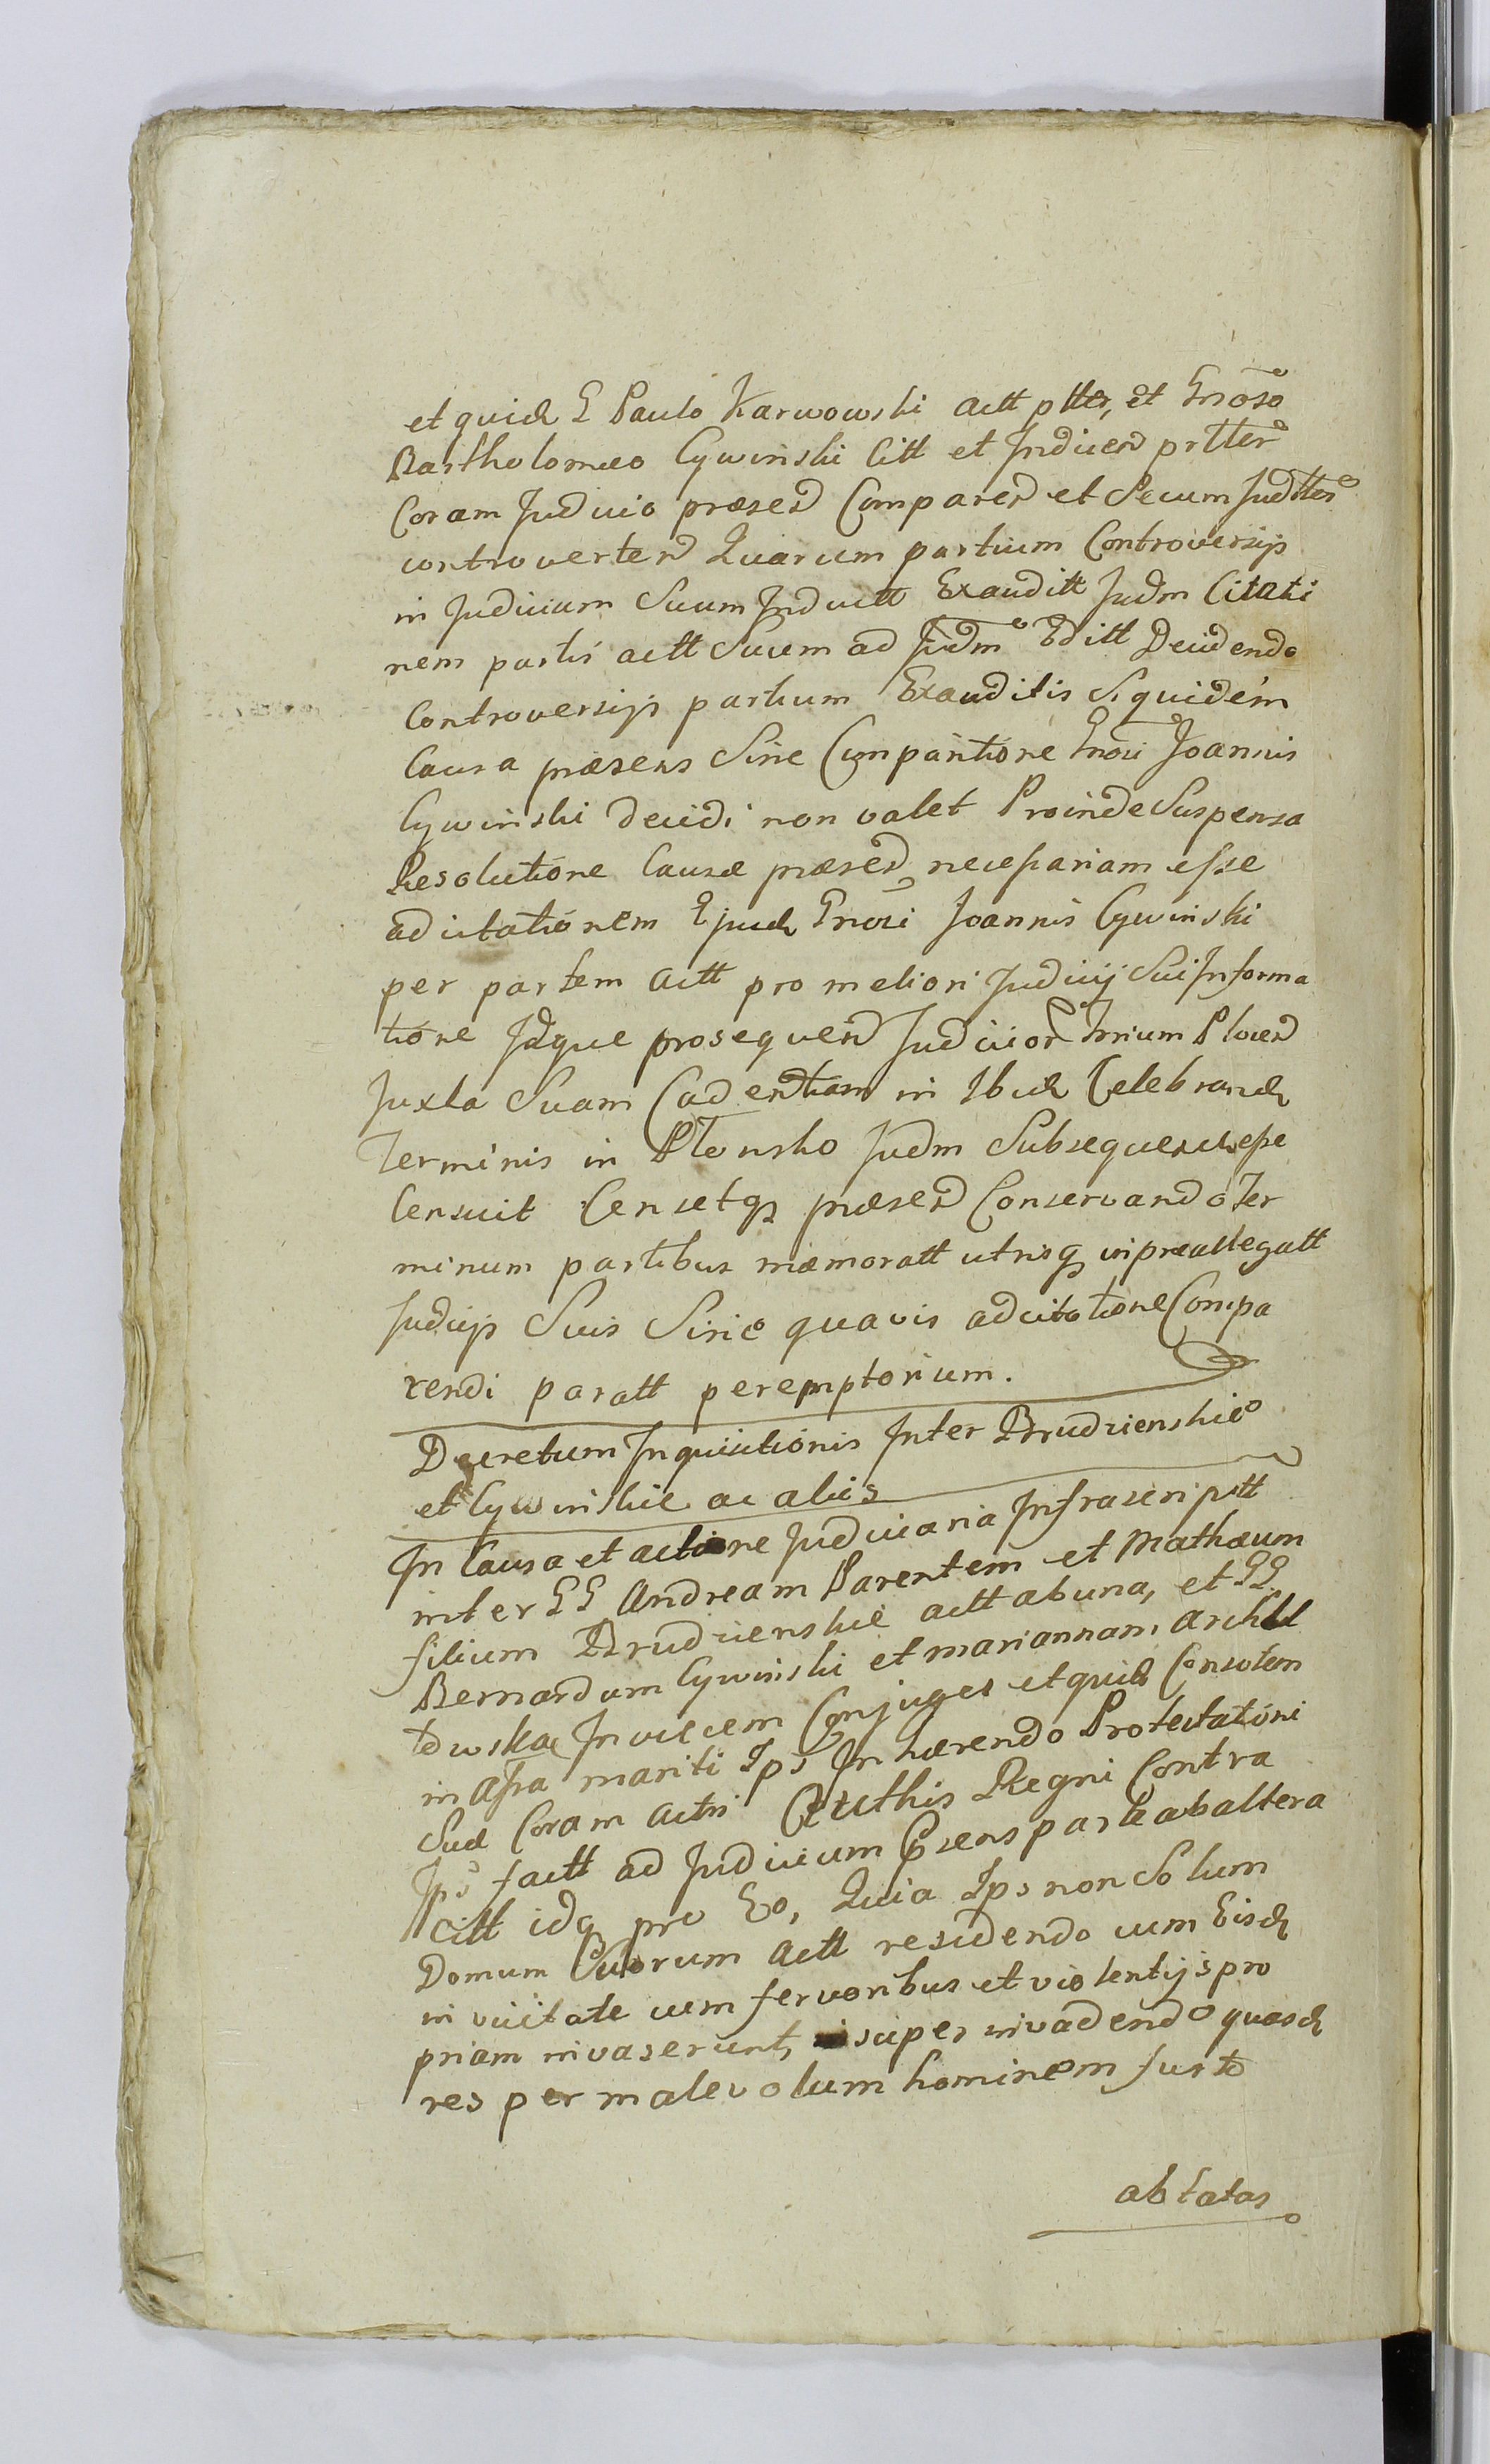 et quid G Paulo Karwowski actt pltter, et Gnoso
Bartholomæo Cywinski Citt et Judicen prtter
Coram Judicio præsen Comparen et Secum Judtter
controverten Quarum partium Controversijs
in Judicium Suum Inductt Exauditt Judm Citati
nem partis actt Suum ad Judm Editt Decidendo
Controversijs partium Exauditis Siquidem
Causa præsens Sine Compantione Gnosi Joannis
Cywinski decidi non valet Proinde Suspensa
Resolutione Causæ præsen necessariam esse
adcitationem Ejusd Gnosi Joannis Cywinski
per partem actt pro meliori Judicij Sui Informa
tione Idque prosequen Judicior Trrium Plocen
Juxta Suam Cadentiam in Ibid Celebrand
Terminis in Plonsko Judm Subsequen esse
Censuit Censetq præsen Conservando Ter
minum partibus memoratt utrisq in præallegatt
Judicijs Suis Sine quavis adcitatione Compa
rendi paratt peremptorium.
Decretum Inquisitionis Inter Brudzienskie
et Cywinskie ac alios
In Causa et actione Judiciaria Infrascriptt
inter GG Andream Parentem et Mathæum
filium Brudzienskie actt ab una, et GG
Bernardum Cywinski et mariannam Archit
towska Invicem Conjuges et quid Consotem
in assa mariti Ips Inhærendo Protestationi
Suæ Coram actis Regni Contra
Ips factt ad Judicium præsens parte ab altera
Citt idq pro Eo, Quia Ips non Solum
Domum Suorum Actt residendo cum Eisd
in vicitate cum fervoribus et violentijs pro
priam invaserunt, super invadendo quasd
res per malevolum hominem furto
ablatas